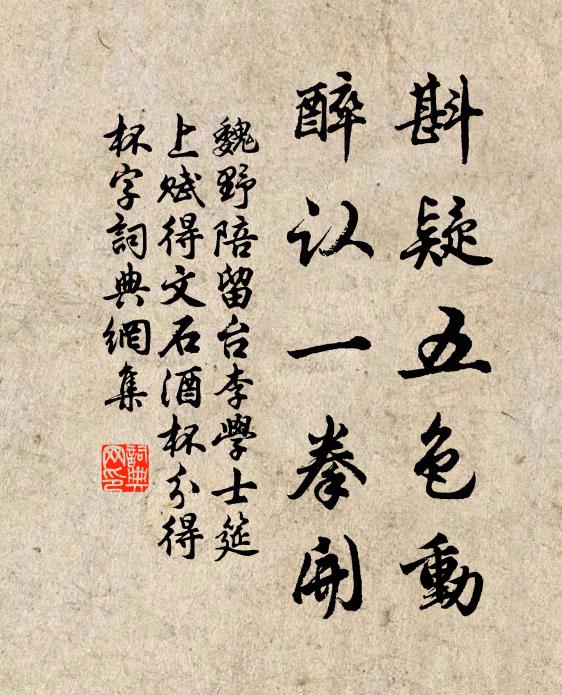 斟疑五色動
醉认一拳開
魏野陪留台李學士筵
上赋得文石酒杯分得
杯字詞典網集
詞典
网印